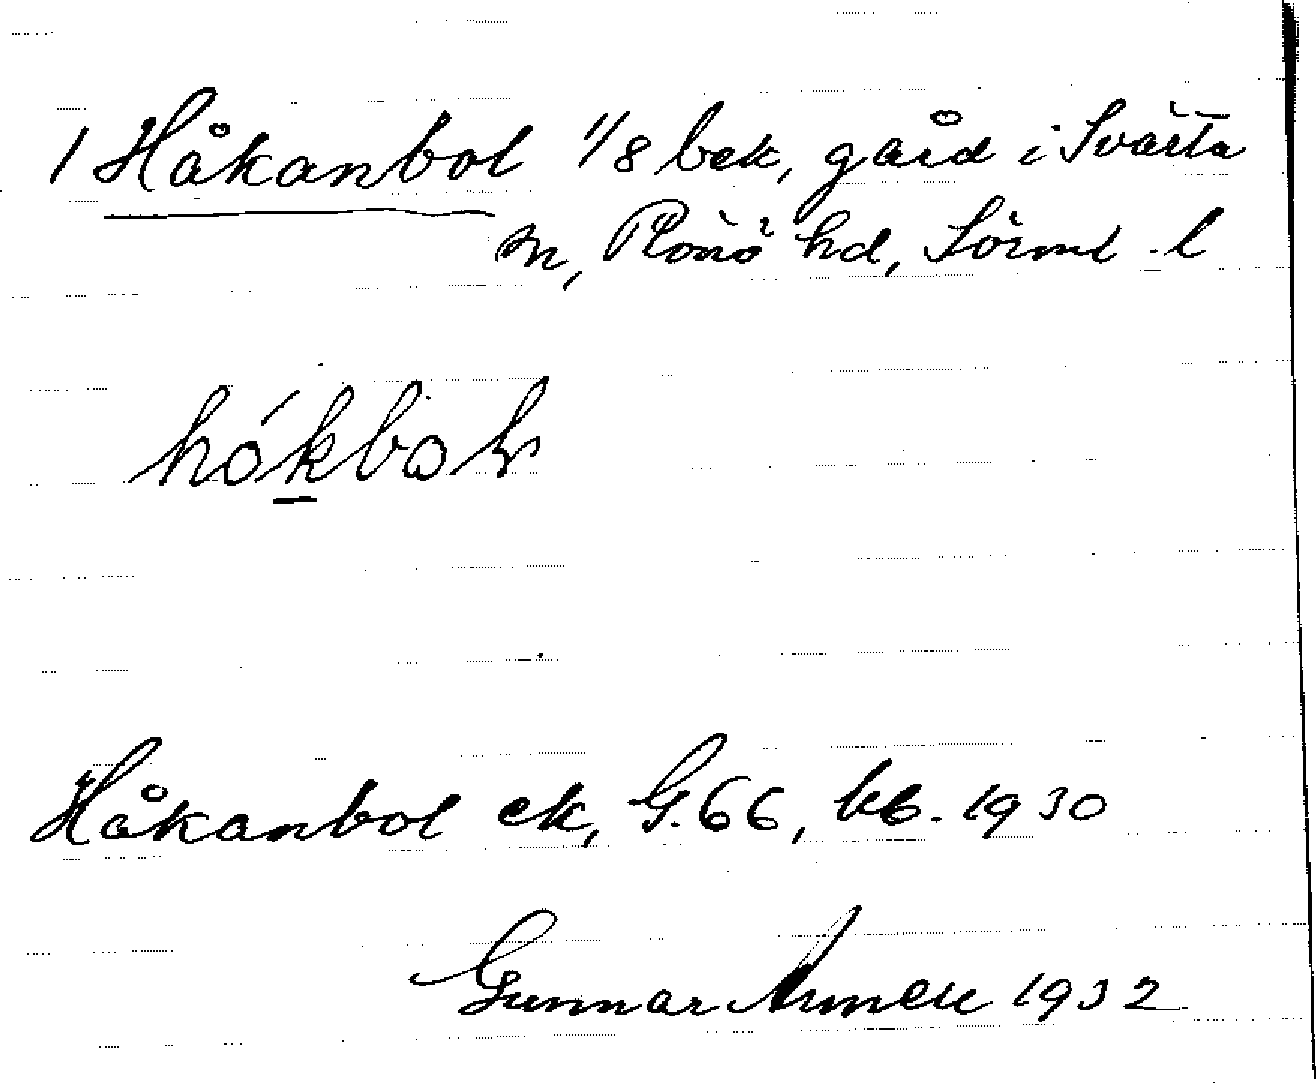 1 Håkanbol 1/8 bek, gård i Svärta
sn, Rönö hd, Sörml. l
hókbol
Håkanbol ek, G.66, bb. 1930
Gunnar 1932